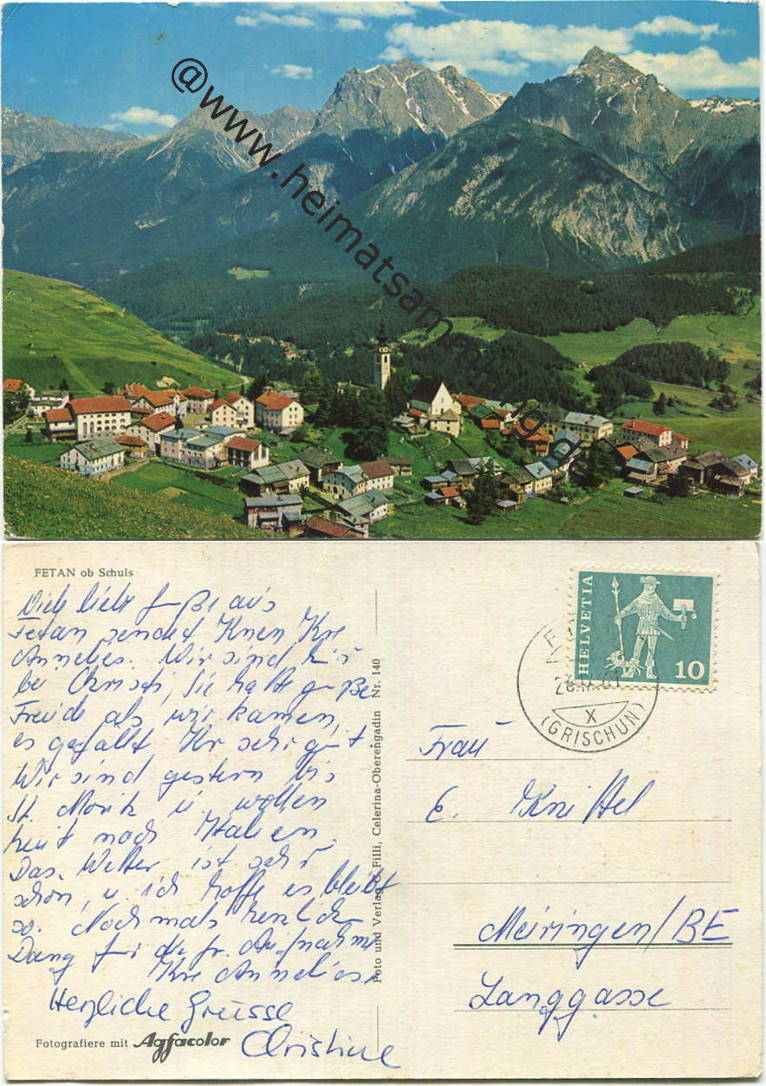 @www.heimatsam
FETAN ob Schuls
Viele liebe Grüße aus
Fetan sendet Ihnen Ihre
Annelies. Wir sind hier
bei Christi, Sie hatte große
Freude als wir kamen,
es gefällt Ihr sehr gut
Wir sind gestern bis
St. Moritz u. wollen
heut nach Italien.
Das Wetter ist sehr
schön, u. ich hoffe es bleibt
so. Nochmals herzlichen
Dank für die fr. Aufnahme
Ihre Annelies
Herzliche Grüsse
Christine
Fotografiere mit Agfacolor
Foto und Verlag Filli, Celerina-Oberengadin Nr. 140
HELVETIA
10
X
(GRISCHUN)
Frau
E. Knittel
Meiringen/BE
Langgasse